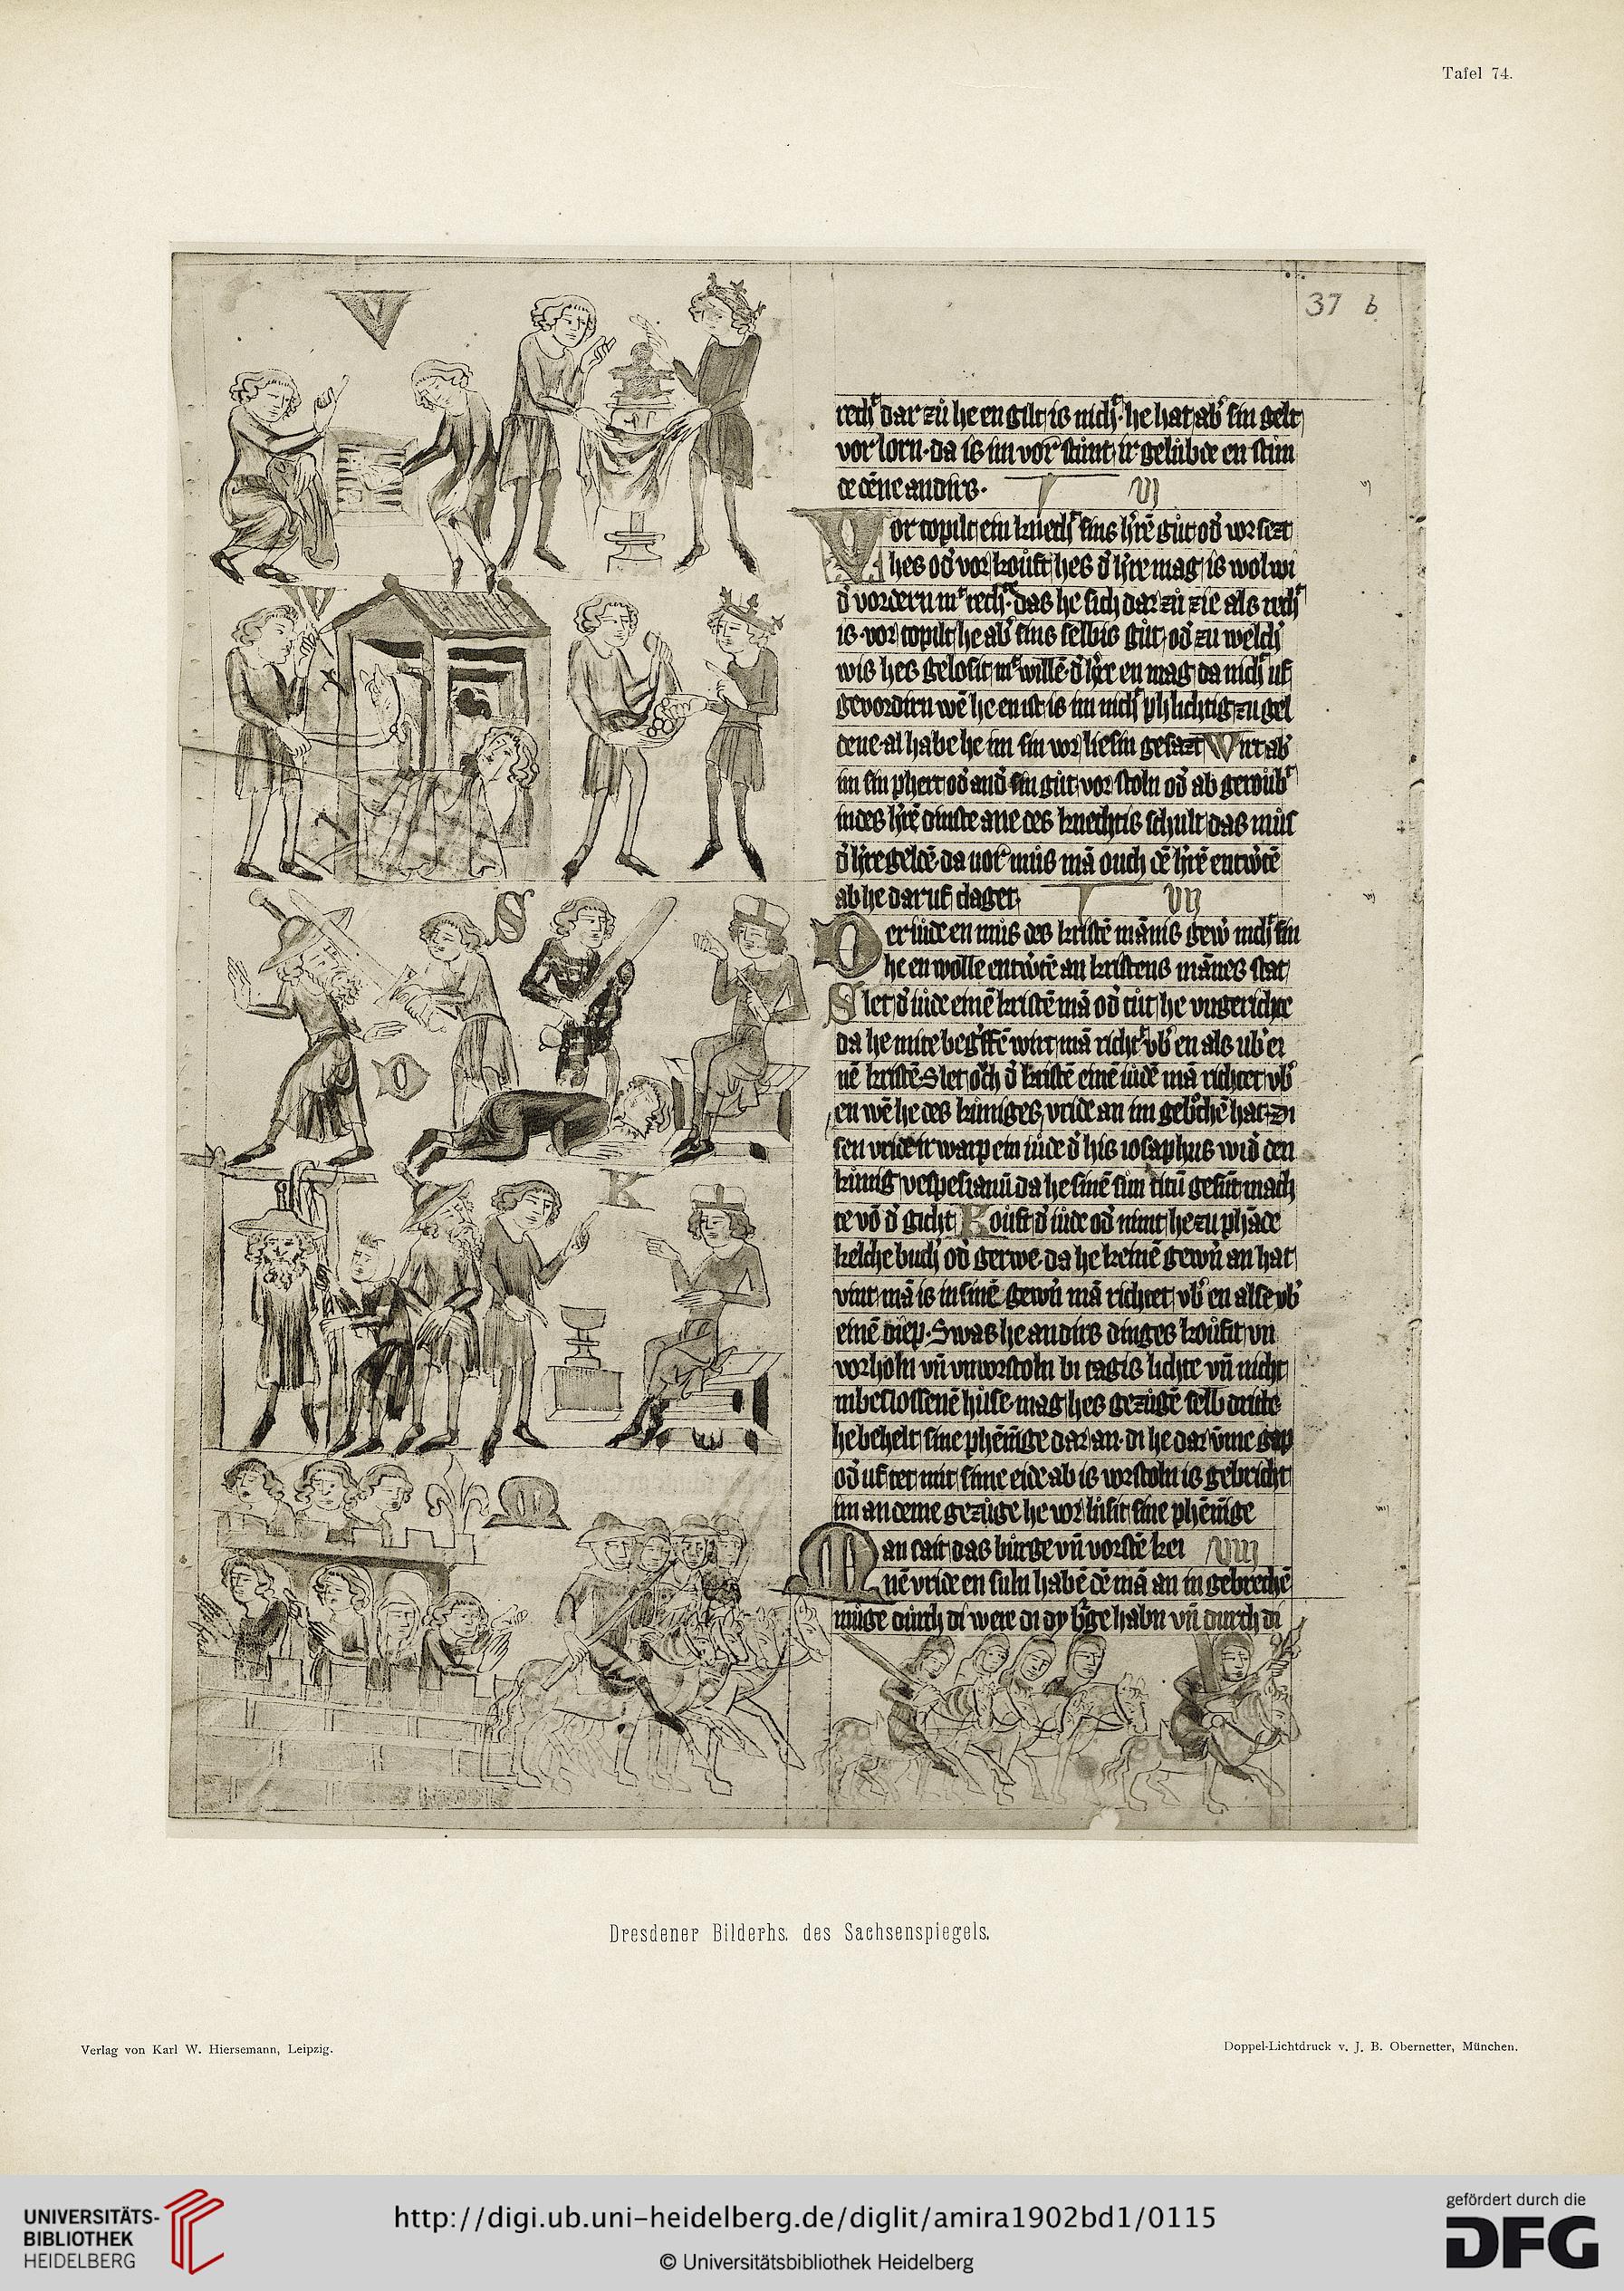 Tafel 74.
37 b
V
rechͭ dar zů he en gilt is nichͭ. he hat ab' sin gelt
vor lorn. da is im vor stunt. ir gelubde en stun
de deme andirs.
VI
Vor topilt ein knechͭ sins h'rē gůt od' vor sezt
hes od' vor kouft hes d' h're mag is wol wi
d' vordern mͭ rechͭ. das he sich dar zů zie als rechͭ
is. vor topilt he ab' sins selbis gůt. od' zu welch'
wis hes gelosit mͭ willē. d' h're en mag da nichͭ uf
gevordirn wē he en ist is im nichͭ phlichtig zu gel
dene. al habe he im sin vor liesin gesazt Wirt ab'
im sin phert od' and' sin gůt vor stoln od' ab geroubͭ
in des h'rē dinste ane des knechtis schult das mus
d' h're geldē. da vor mus mā ouch dē h'rē entw'tē
ab he dar uf claget.
VII
Der iude en mus des kristē mānis gew' nichͭ sin
he en wolle entw'tē an kristens mānes stat
Slet d' iude einē kristē mā od' tut he ungerichte
da he mite begr'ffē wirt mā richtͭ ub' en als ub' ei
nē kristē. Slet och d' kristē einē iudē mā richtet ub'
en wē he des kuniges vride an im gebr'chē hat. di
sen vride irwarp ein iude d' his iosaphus wid' den
kunig vespesianū da he sinē sun titū gesunt mach
te vō d' gicht Kouft d' iude od' nimt he zu phāde
kelche buch' od' gerwe. da he keinē gewern an hat
vint mā is in sinē gewern mā richtet ub' en alse ub'
einē diep. Swas he andirs dinges koufit un
vorholn un unvorstoln bi tagis lichte un nicht
in beslossenē huse. mag hes gezugē selb dritte
he behelt sine phēnīge dar an. di he dar ume gap
od' uf tet mit sime eide ab is vorstoln is gebricht
im an deme gezuge he vorlusit sine phēnīge
VIII
Man sait das burge un vorstē kei
nē vride en suln habē dē mā an in gebrechē
muge durch di were di dy b'ge habn un durch di
V
S
O
K
M
Dresdener Bilderhs. des Sachsenspiegels.
Verlag von Karl W. Hiersemann, Leipzig.
Doppel-Lichtdruck v. J. B. Obernetter, München.
UNIVERSITÄTS-
BIBLIOTHEK
HEIDELBERG
http://digi.ub.uni-heidelberg.de/diglit/amira1902bd1/0115
© Universitätsbibliothek Heidelberg
gefördert durch die
DFG